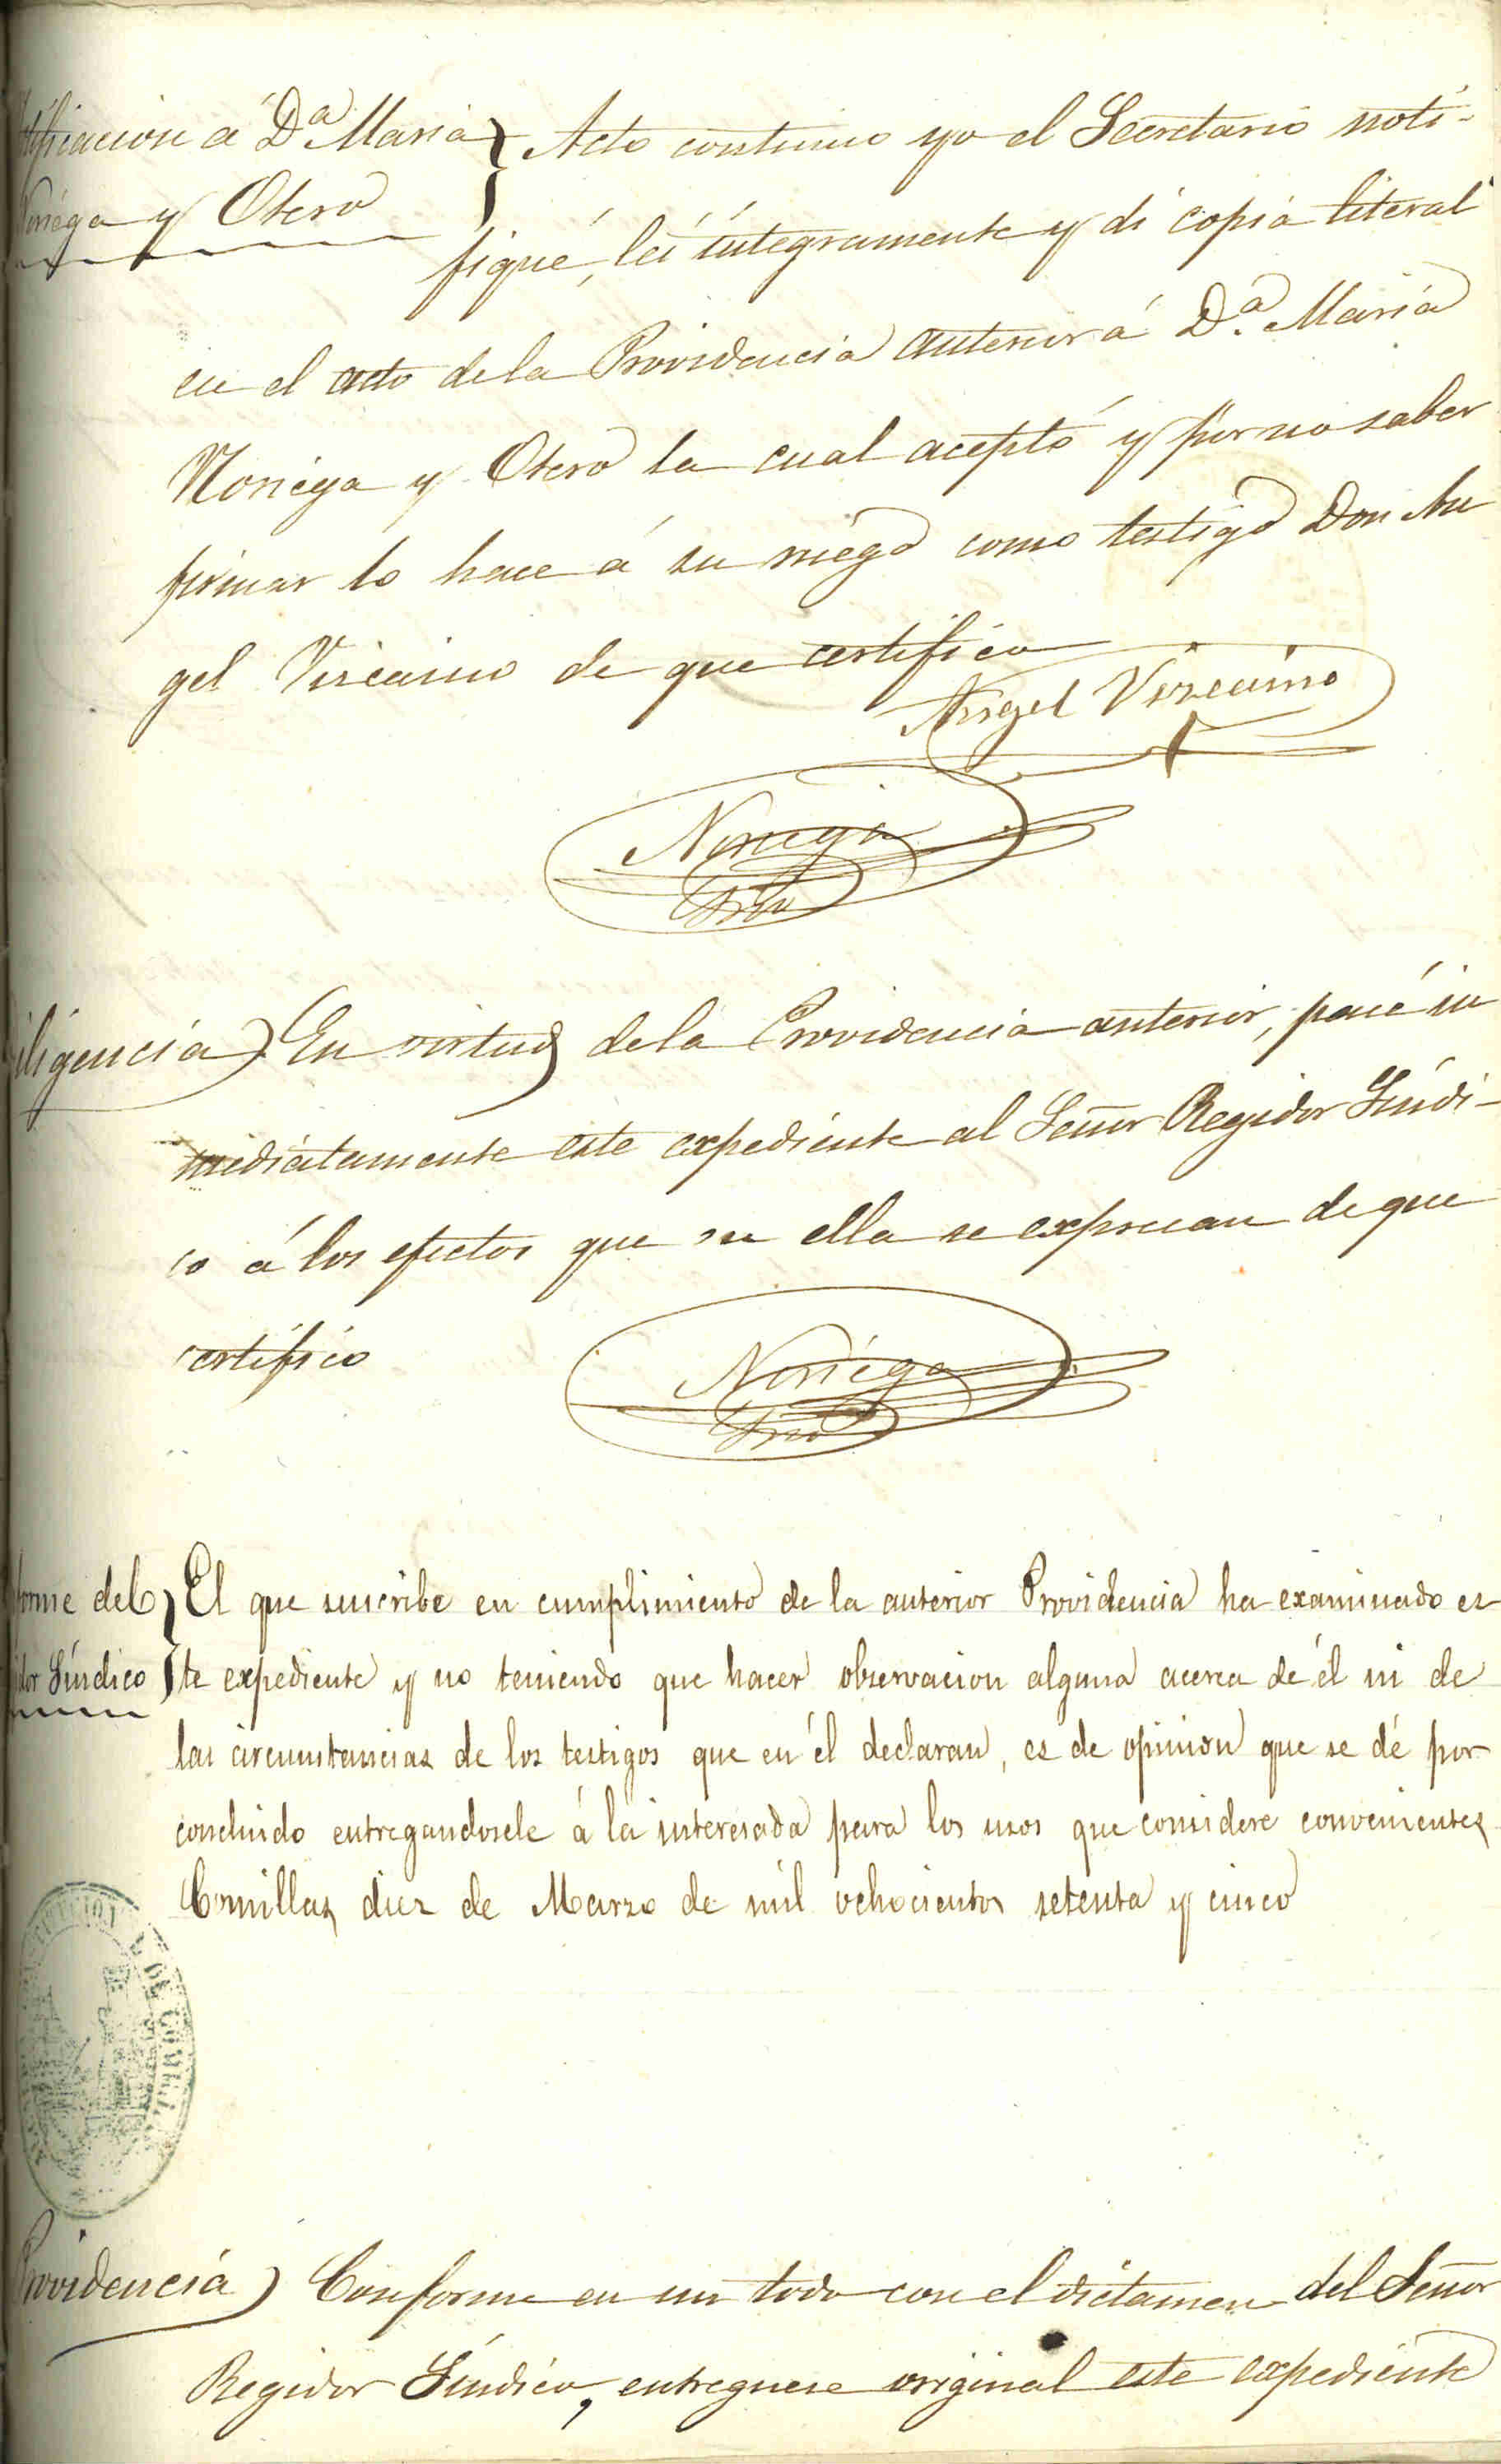 tificacion á D.ª Maria } Acto continuo yo el Secretario noti-
Noriega y Otero
fiqué, leí íntegramente y di copia literal
en el acto de la Providencia anterior á D.ª Maria
Noriega y Otero la cual aceptó y por no saber
firmar lo hace á su ruego como testigo Don An
gel Viscaino de que certifico
Angel Vizcaino
Noriega
Srio
iligencia) En virtud de la Providencia anterior, pasé in
mediatamente este expediente al Señor Regidor Síndi-
co á los efectos que en ella se expresan de que
certifico
Noriega
Srio
forme del } El que suscribe en cumplimiento de la anterior Providencia ha examinado es
idor Síndico } te expediente y no teniendo que hacer observacion alguna acerca de él ni de
las circunstancias de los testigos que en él declaran, es de opinion que se dé por
concluido entregandosele á la interesada para los usos que considere convenientes
Comillas diez de Marzo de mil ochocientos setenta y cinco
DE COMILLAS
Providencia) Conforme en un todo con el dictamen del Señor
Regidor Síndico, entreguese original este expediente